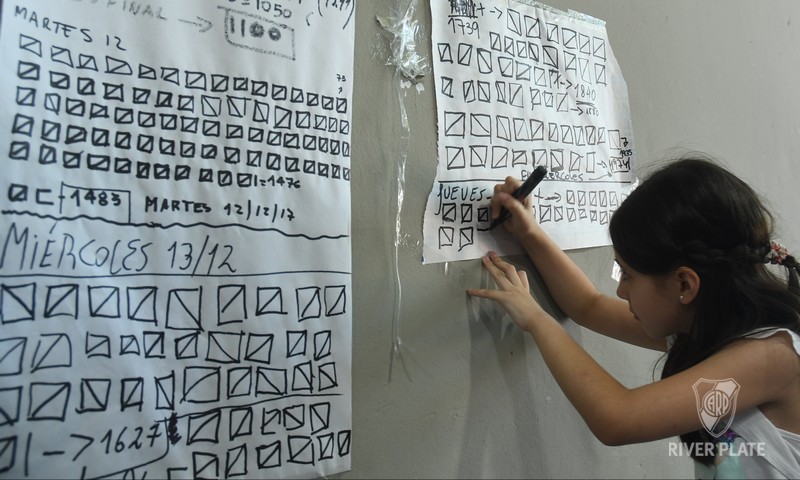 FINAL → 1050
1100
MARTES 12
73
= 1476
1483 MARTES 12/12/17
MIÉRCOLES 13/12
-> 1627
1739
→ 1840
JUEVES
CARP
RIVER PLATE